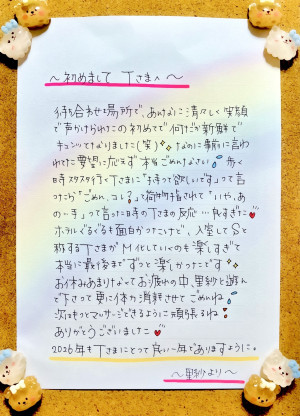 ～初めまして Tさまへ～
待ち合わせ場所で、あんなに清々しく笑顔
で声かけられたの初めてで何だか新鮮で
キュンッてなりました(笑)なのに事前に言わ
れてた要望に応えず本当ごめんなさい 歩く
時スタスタ行くTさまに"待って欲しいです"って言
ったら"ごめん、コレ?"って荷物指されて"いや、あ
の…手"って言った時のTさまの反応…良すぎた
ホテルぐるぐるも面白かったけど、入室してSと
称するTさまがM化していくのも楽しすぎて
本当に最後までずっと楽しかったです
お休みあまりなくてお疲れの中、里紗と遊ん
で下さって更に体力消耗させてごめんね
次はもっとマッサージできるように頑張るね
ありがとうございました
2026年もTさまにとって良い一年でありますように。
～里紗より～